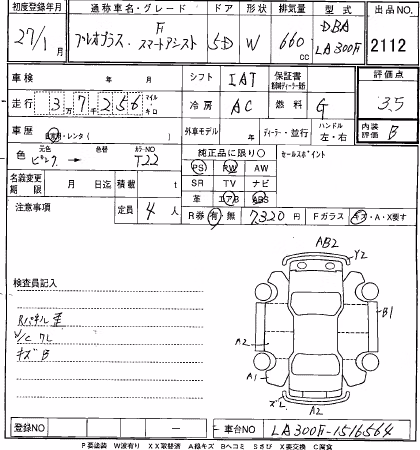 初度登録年月 通称車名・グレード ドア 形状 排気量 型式 出品NO
27/1月 プレオプラス F スマートアシスト 5D W 660cc DBA LA300F 2112
車検 年 月 シフト IAT 保証書 評価点
走行 3万7千256 マイル キロ 冷房 AC 燃料 G 3.5
車歴 自家用・レンタ ( ) 外車モデル 年 ディーラー・並行 ハンドル 左・右 内装評価 B
色 元色 ピンク → 色替 カラーNO T22 純正品に限り○ セールスポイント
PS PW AW
名義変更期限 月 日迄 積載 t SR TV ナビ
革 エアB ABS
注意事項 定員 4人 R券 有・無 7320円 Fガラス キズ・A・X要す
検査員記入
Rパネル歪
W/C ワレ
キズ B
AB2
Y2
B1
A2
A1
ズレ
A2
登録NO ー 車台NO LA300F-1516564
P要塗装 W波有り XX取替済 A線キズ Bヘコミ Sさび X要交換 C腐食